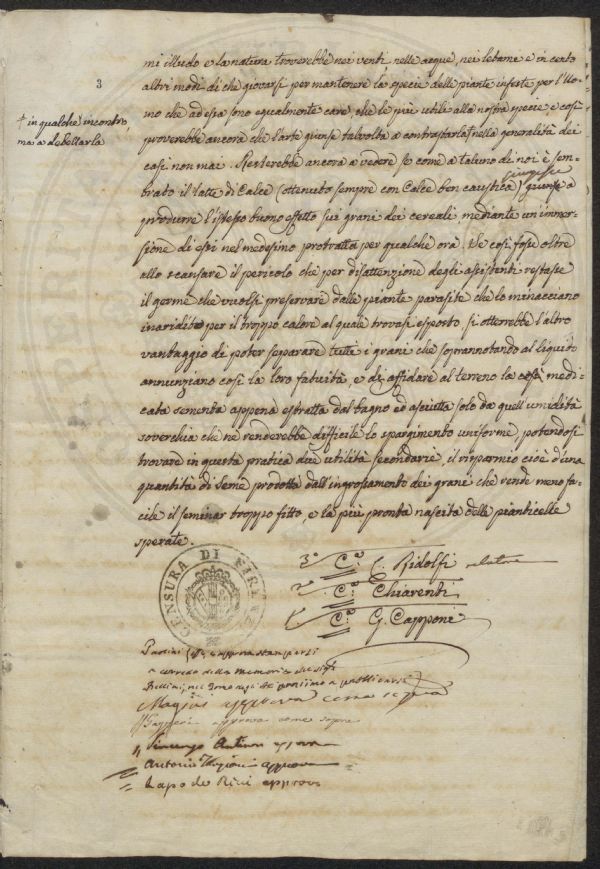 3
† in qualche incontro,
ma a debellarla
mi illudo e la natura troverebbe nei venti, nelle acque, nei letame e in certo
altri modi di che giovarsi per mantenere la specie delle piante infeste per l'Uo-
mo che ad essa sono egualmente care, che le più utili alla nostra specie, e così
proverebbe ancora che l'arte giunse talvolta a contrastarla † nella generalità dei
casi non mai. Resterebbe ancora a vedere se come a taluno di noi è sem-
brato il latte di Calce (ottenuto sempre con Calce ben caustica) giunge a
giungesse
produrre l'istesso buono effetto sui grani dei cereali mediante un'immer-
sione di essi nel medesimo protratta per qualche ora. Se così fosse oltre
allo scansare il pericolo che per disattenzione degli assistenti restasse
il germe che vuolsi preservare dalle piante parasite che lo minacciano
inaridito per il troppo calore al quale trovasi esposto, si otterrebbe l'altro
vantaggio di poter separare tutti i grani che soprannotando al liquido
annunziano così la loro fatuità, e di affidare al terreno la così medi-
cata sementa appena estratta dal bagno ed asciutta solo da quell'umidità
soverchia che ne renderebbe difficile lo spargimento uniforme, potendosi
trovare in questa pratica due utilità secondarie, il risparmio cioè d'una
quantità di seme prodotta dall'ingrossamento dei grani che rende meno fa-
cile il seminar troppo fitto, e la più pronta nascita delle pianticelle
sperate.
CENSURA DI FIRENZE
3° C. Ridolfi relatore
2° Chiarenti
1° G. Capponi
approva stamparsi
a corredo della Memoria del Sigr
approva come sopra
approva come sopra
Vincenzo Antinori approva
Antonio approva
Lapo de Ricci approva